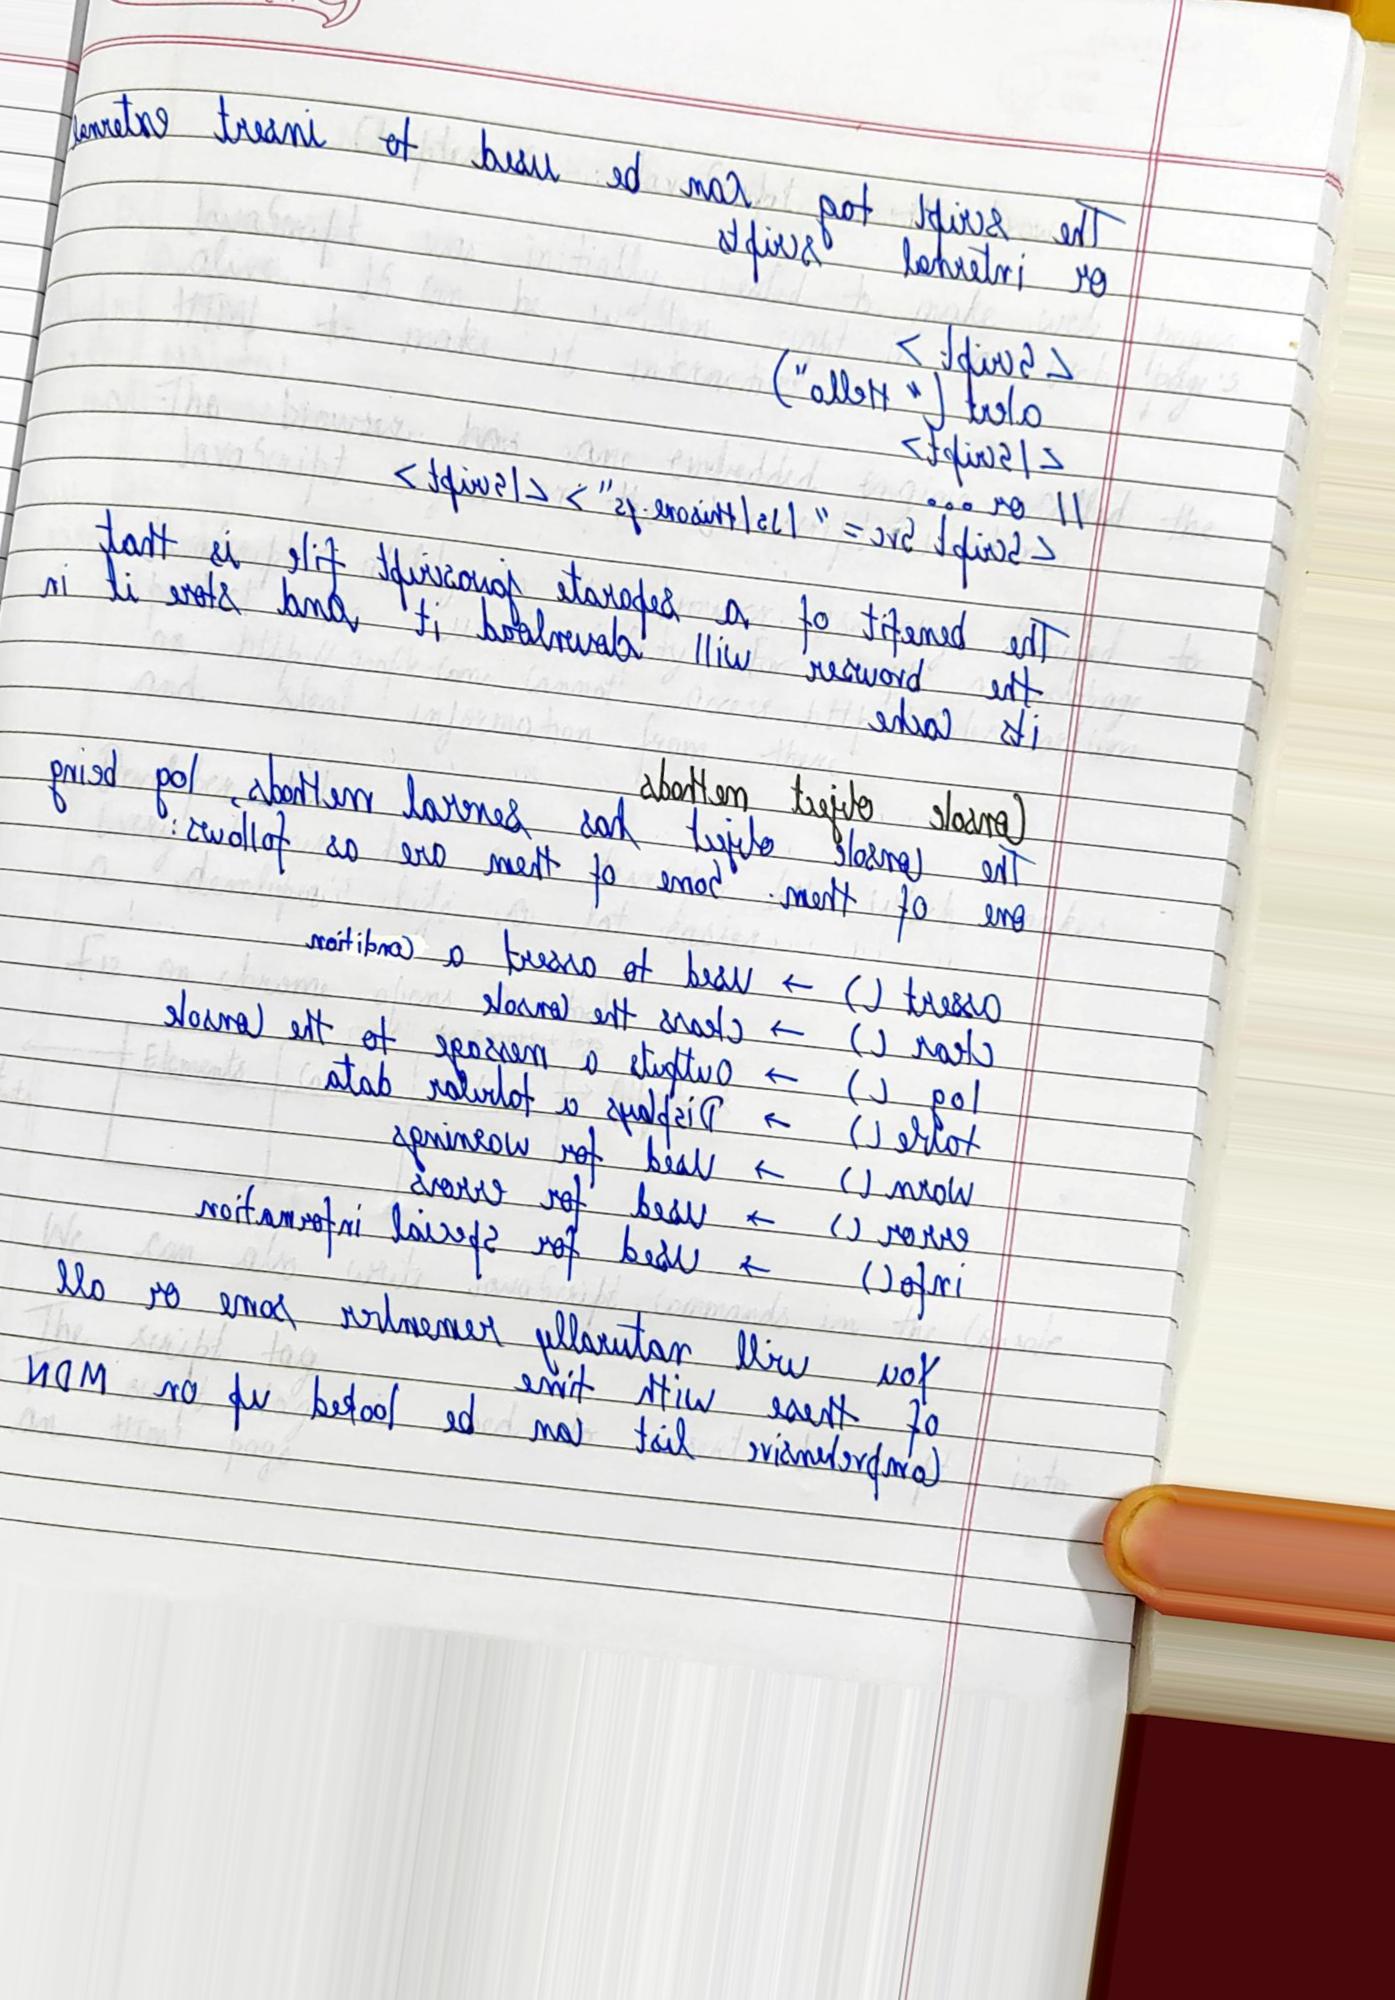 The script tag can be used to insert external
or internal scripts
<Script>
alert ("Hello")
</Script>
// or ...
<Script Src = "/Js/thisone.js"> </Script>
The benefit of a separate javascript file is that
the browser will download it and store it in
its cache
Console object methods
The console object has several methods, log being
one of them. Some of them are as follows:
assert () → Used to assert a condition
clear () → Clears the console
log () → Outputs a message to the console
table () → Displays a tabular data
Warn () → Used for warnings
error () → Used for errors
info () → Used for special information
You will naturally remember some or all
of these with time
Comprehensive list can be looked up on MDN